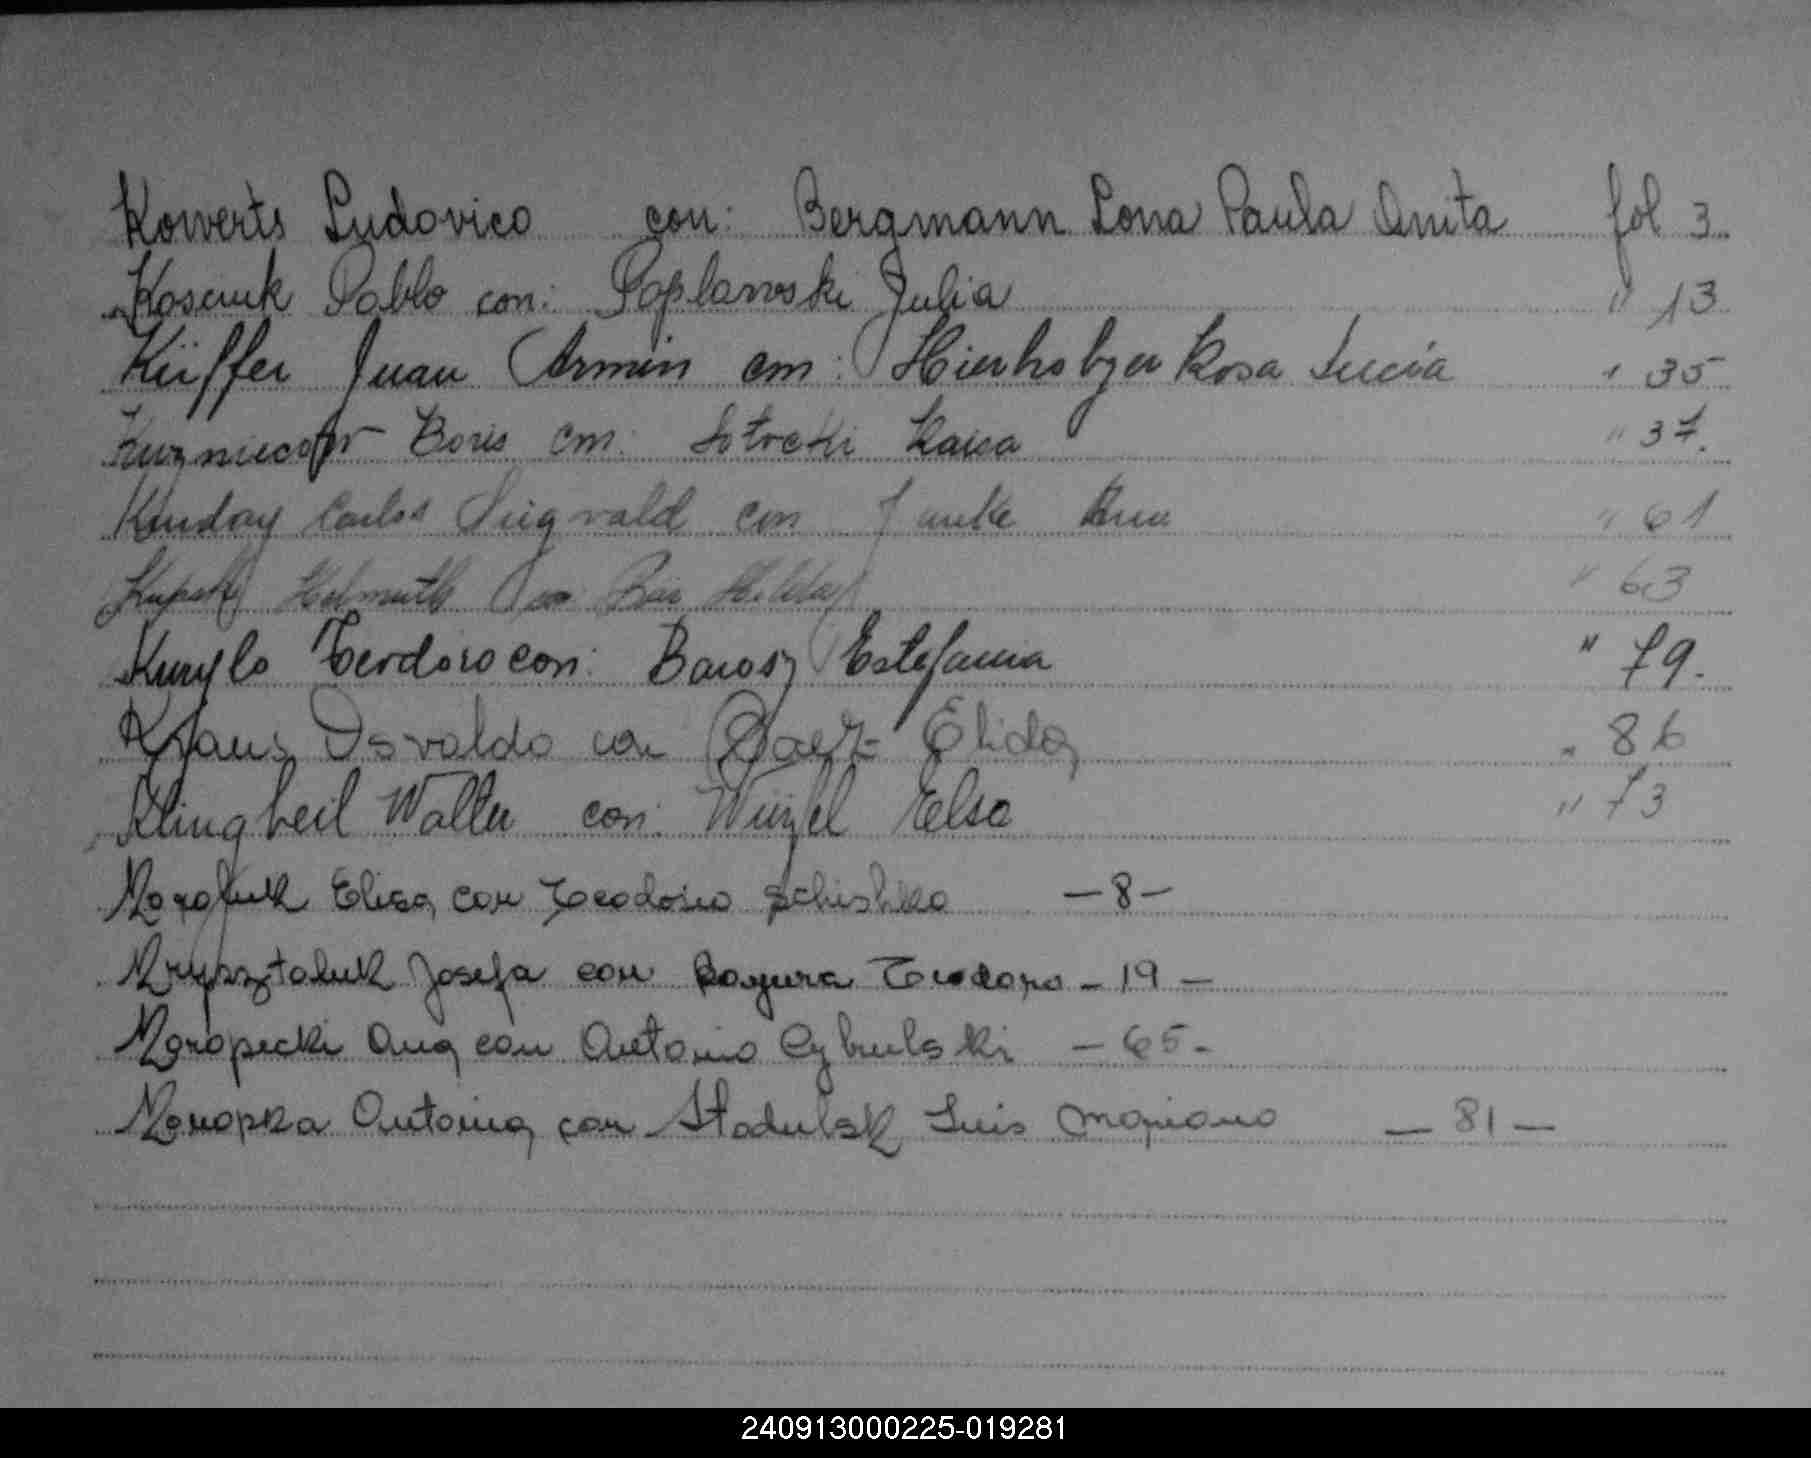 Kowerts Ludovico con: Bergmann Lona Paula Anita fol 3
Kosciuk Pablo con: Poplawski Julia " 13
Küffer Juan Armin con: Hierholzer Rosa Lucia " 35
Kuzniecow Boris con: Sotocki Raisa " 37.
Carlos Siegvald con Janke " 61
Helmuth con Hilda " 63
Kurylo Teodoro con: Barosz Estefania " 79.
Kraus Osvaldo con Baez Elida " 86
Klingbeil Walter con: Wurfel Elsa " 73
Elisa con Teodosio Schishko - 8 -
Krysztaluk Josefa con Teodoro - 19 -
Koropecki Ana con Antonio Cybulski - 65 -
Konopka Antonina con Stadulsk Luis Mariano - 81 -
240913000225-019281